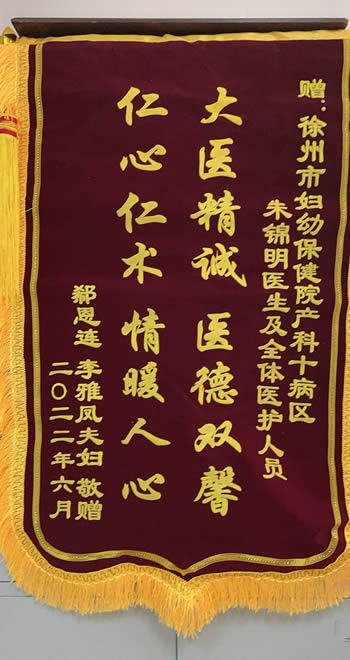 赠:徐州市妇幼保健院产科十病区
朱锦明医生及全体医护人员
大医精诚 医德双馨
仁心仁术 情暖人心
郗恩连 李雅凤夫妇 敬赠
二〇二二年六月